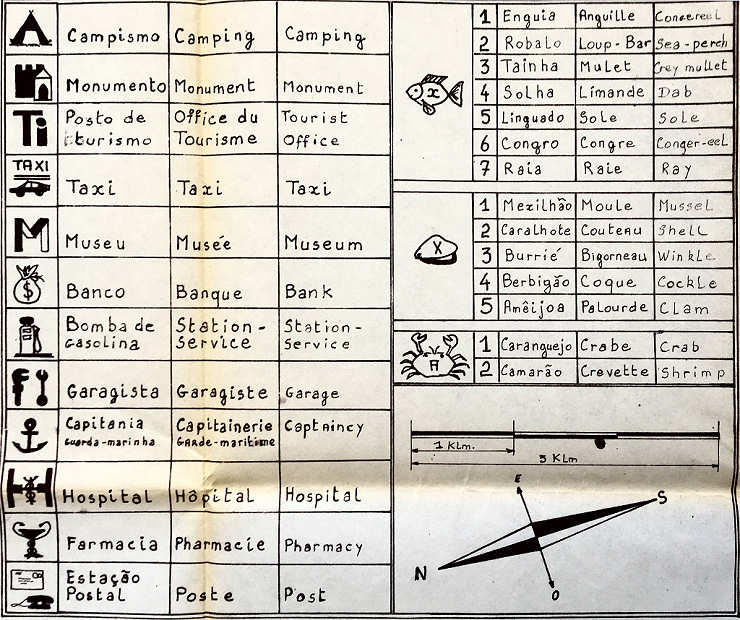 Campismo Camping Camping
Monumento Monument Monument
Ti Posto de Office du Tourist
turismo Tourisme Office
TAXI Taxi Taxi Taxi
M Museu Musée Museum
$ Banco Banque Bank
Bomba de Station- Station-
Gasolina Service Service
Garagista Garagiste Garage
Capitania Capitainerie Captaincy
Guarda-marinha Garde-maritime
H Hospital Hôpital Hospital
Farmacia Pharmacie Pharmacy
Estação
Postal Poste Post
X
1 Enguia Anguille
2 Robalo Loup-Bar Sea-perch
3 Tainha Mulet Grey mullet
4 Solha Limande Dab
5 Linguado Sole Sole
6 Congro Congre Conger-eel
7 Raia Raie Ray
X
1 Mexilhão Moule Mussel
2 Caralhote Couteau Shell
3 Burrié Bigorneau Winkle
4 Berbigão Coque Cockle
5 Amêijoa Palourde Clam
A
1 Caranguejo Crabe Crab
2 Camarão Crevette Shrimp
1 Klm.
3 Klm
E
S
N
O